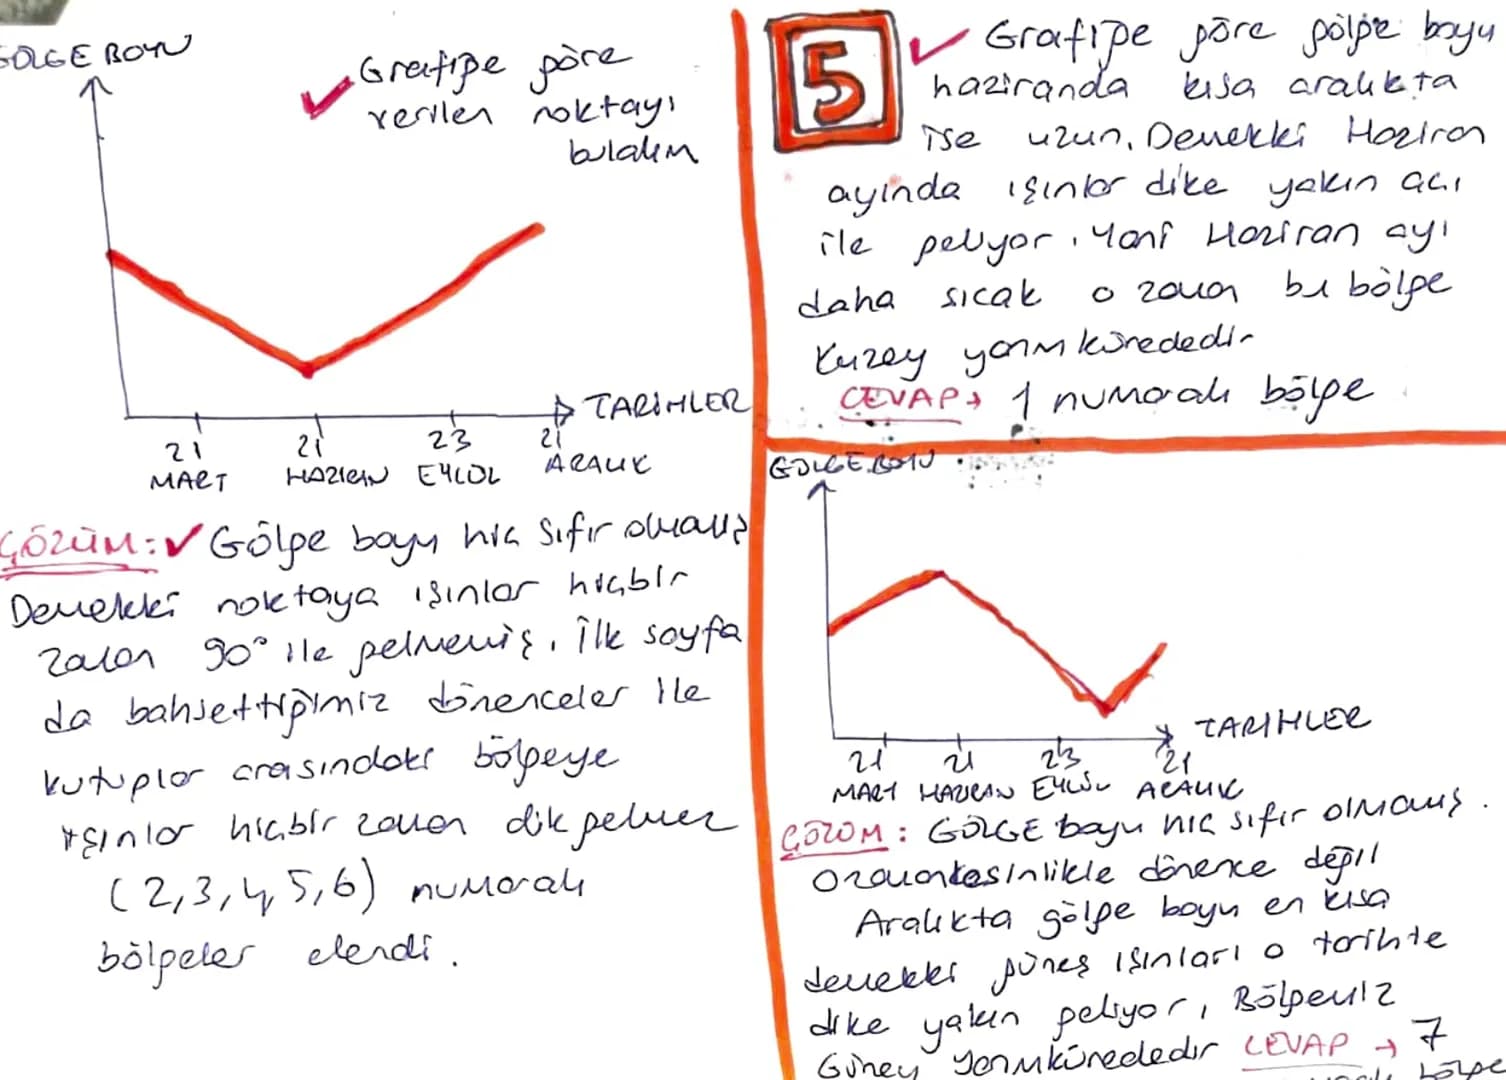 GÖLGE BOYU
Grafiğe göre
verilen noktayı
bulalım
TARİHLER
21 21 23 21
MART HAZİRAN EYLÜL ARALIK
ÇÖZÜM: Gölge boyu hiç sıfır olmamış
Demekki noktaya ışınlar hiçbir
zaman 90° ile gelmemiş. İlk sayfa
da bahsettiğimiz dönenceler ile
kutuplar arasındaki bölgeye
ışınlar hiçbir zaman dik gelmez
(2,3,4,5,6) numaralı
bölgeler elendi.
5 Grafiğe göre gölge boyu
haziranda kısa aralıkta
ise uzun. Demekki Haziran
ayında ışınlar dike yakın açı
ile geliyor. Yani Haziran ayı
daha sıcak o zaman bu bölge
Kuzey yarım kürededir
CEVAP → 1 numaralı bölge
GÖLGE BOYU
TARİHLER
21 21 23 21
MART HAZİRAN EYLÜL ARALIK
ÇÖZÜM: GÖLGE boyu hiç sıfır olmamış.
O zaman kesinlikle dönence değil
Aralıkta gölge boyu en kısa
demekki güneş ışınları o tarihte
dike yakın geliyor, Bölgemiz
Güney Yarımkürededir CEVAP → 7
bölge